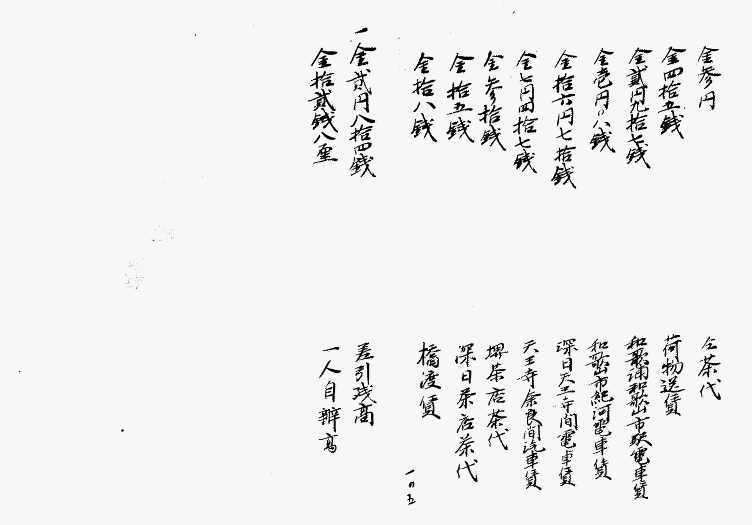 金参円 仝茶代
金四拾五銭 荷物送賃
金貳円九拾七銭 和歌浦和歌山市駅電車賃
金壱円〇八銭 和歌山市紀ノ河電車賃
金拾六円七拾銭 深日天王寺間電車賃
金七円四拾七銭 天王寺奈良間汽車賃
金参拾銭 堺茶店茶代
金拾五銭 深日茶店茶代
金拾八銭 橋渡賃
一〇五
一金貳円八拾四銭 差引残高
金拾貳銭八厘 一人自辨高